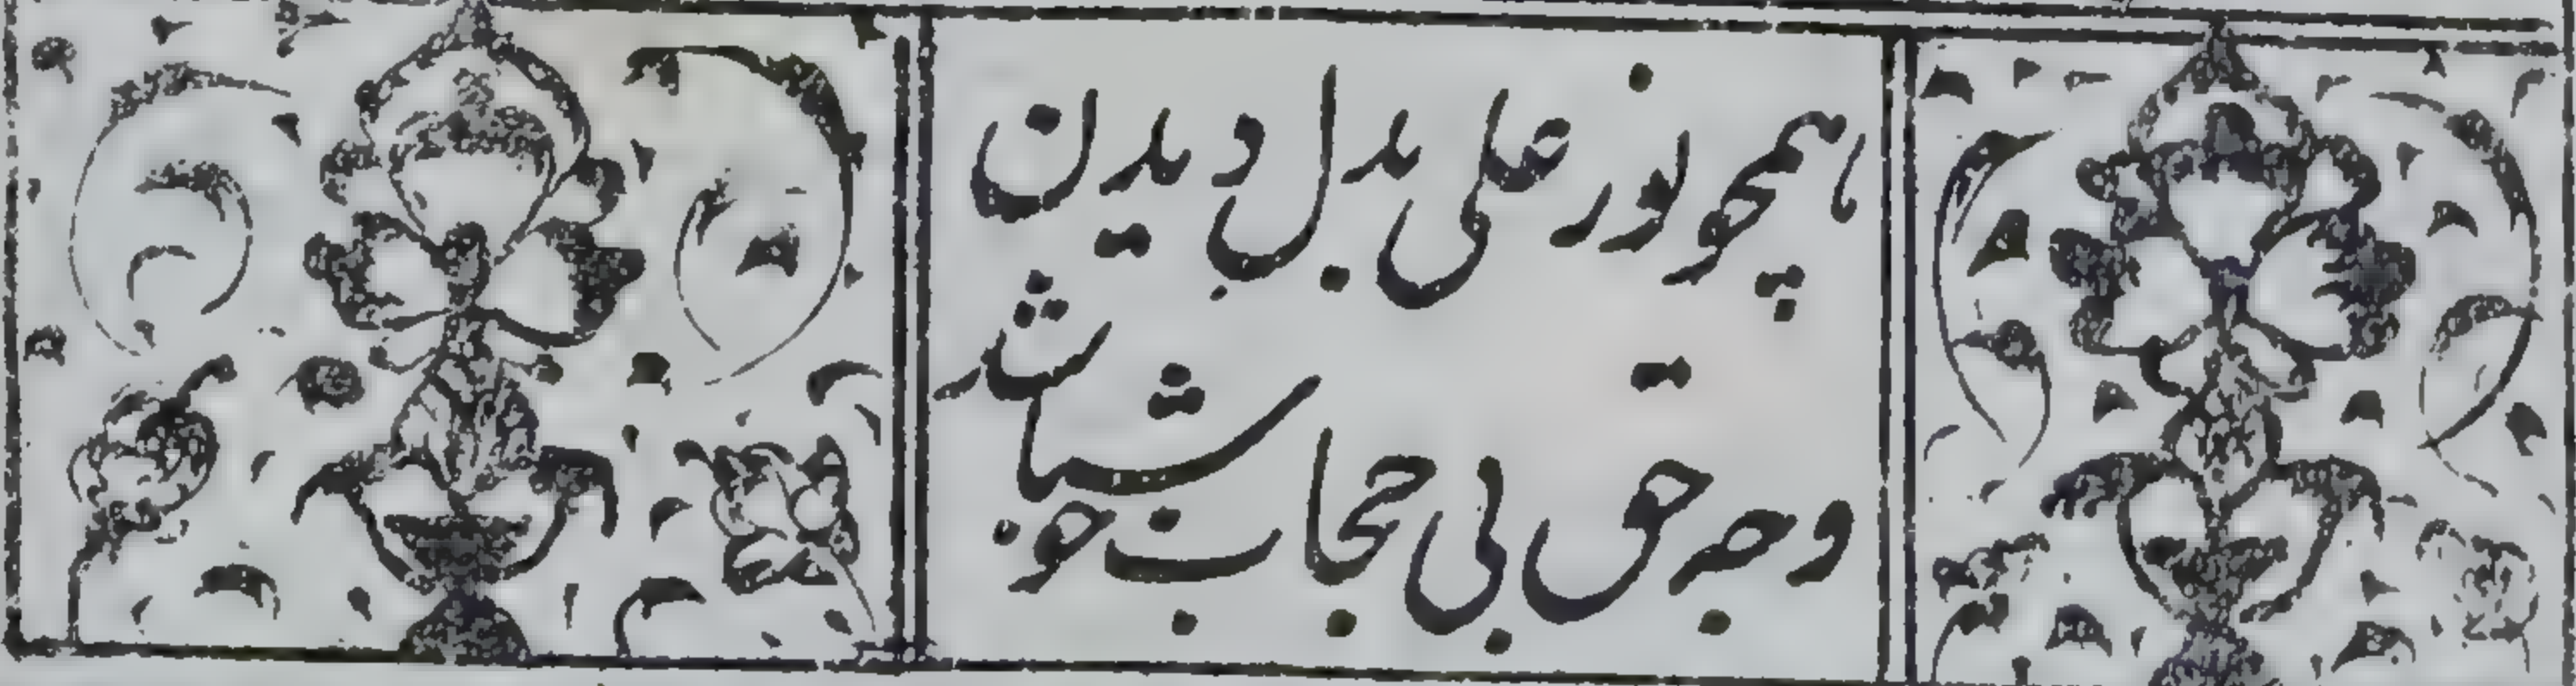 همچو نور علی بدل دیدن
وجه حق بی حجاب خوش باشد